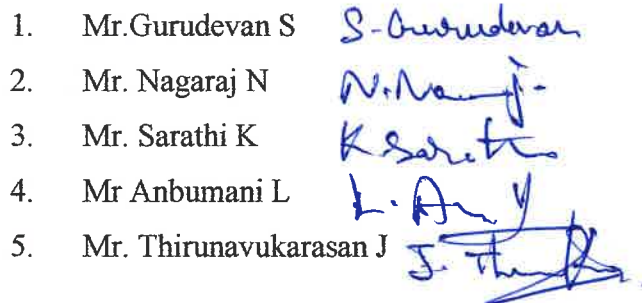 1. Mr.Gurudevan S S-Gurudevan
2. Mr. Nagaraj N
3. Mr. Sarathi K K Sarath
4. Mr Anbumani L
5. Mr. Thirunavukarasan J